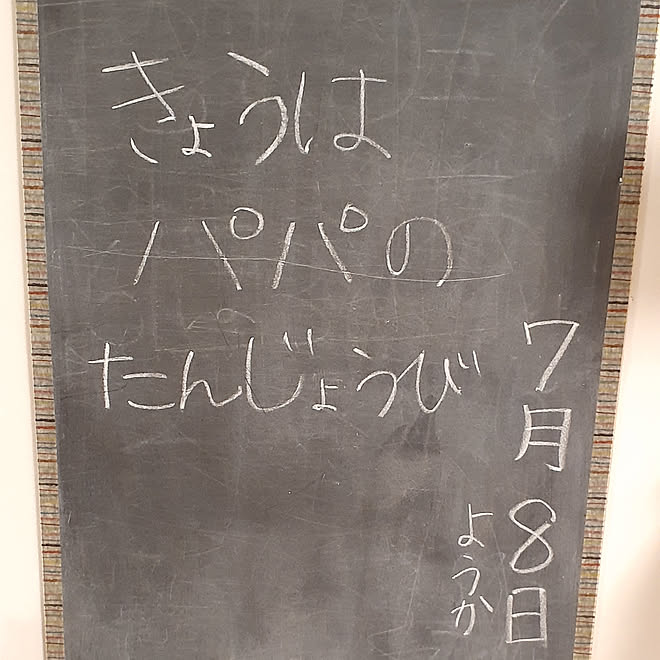 きょうは
パパの
たんじょうび
7月8日
ようか